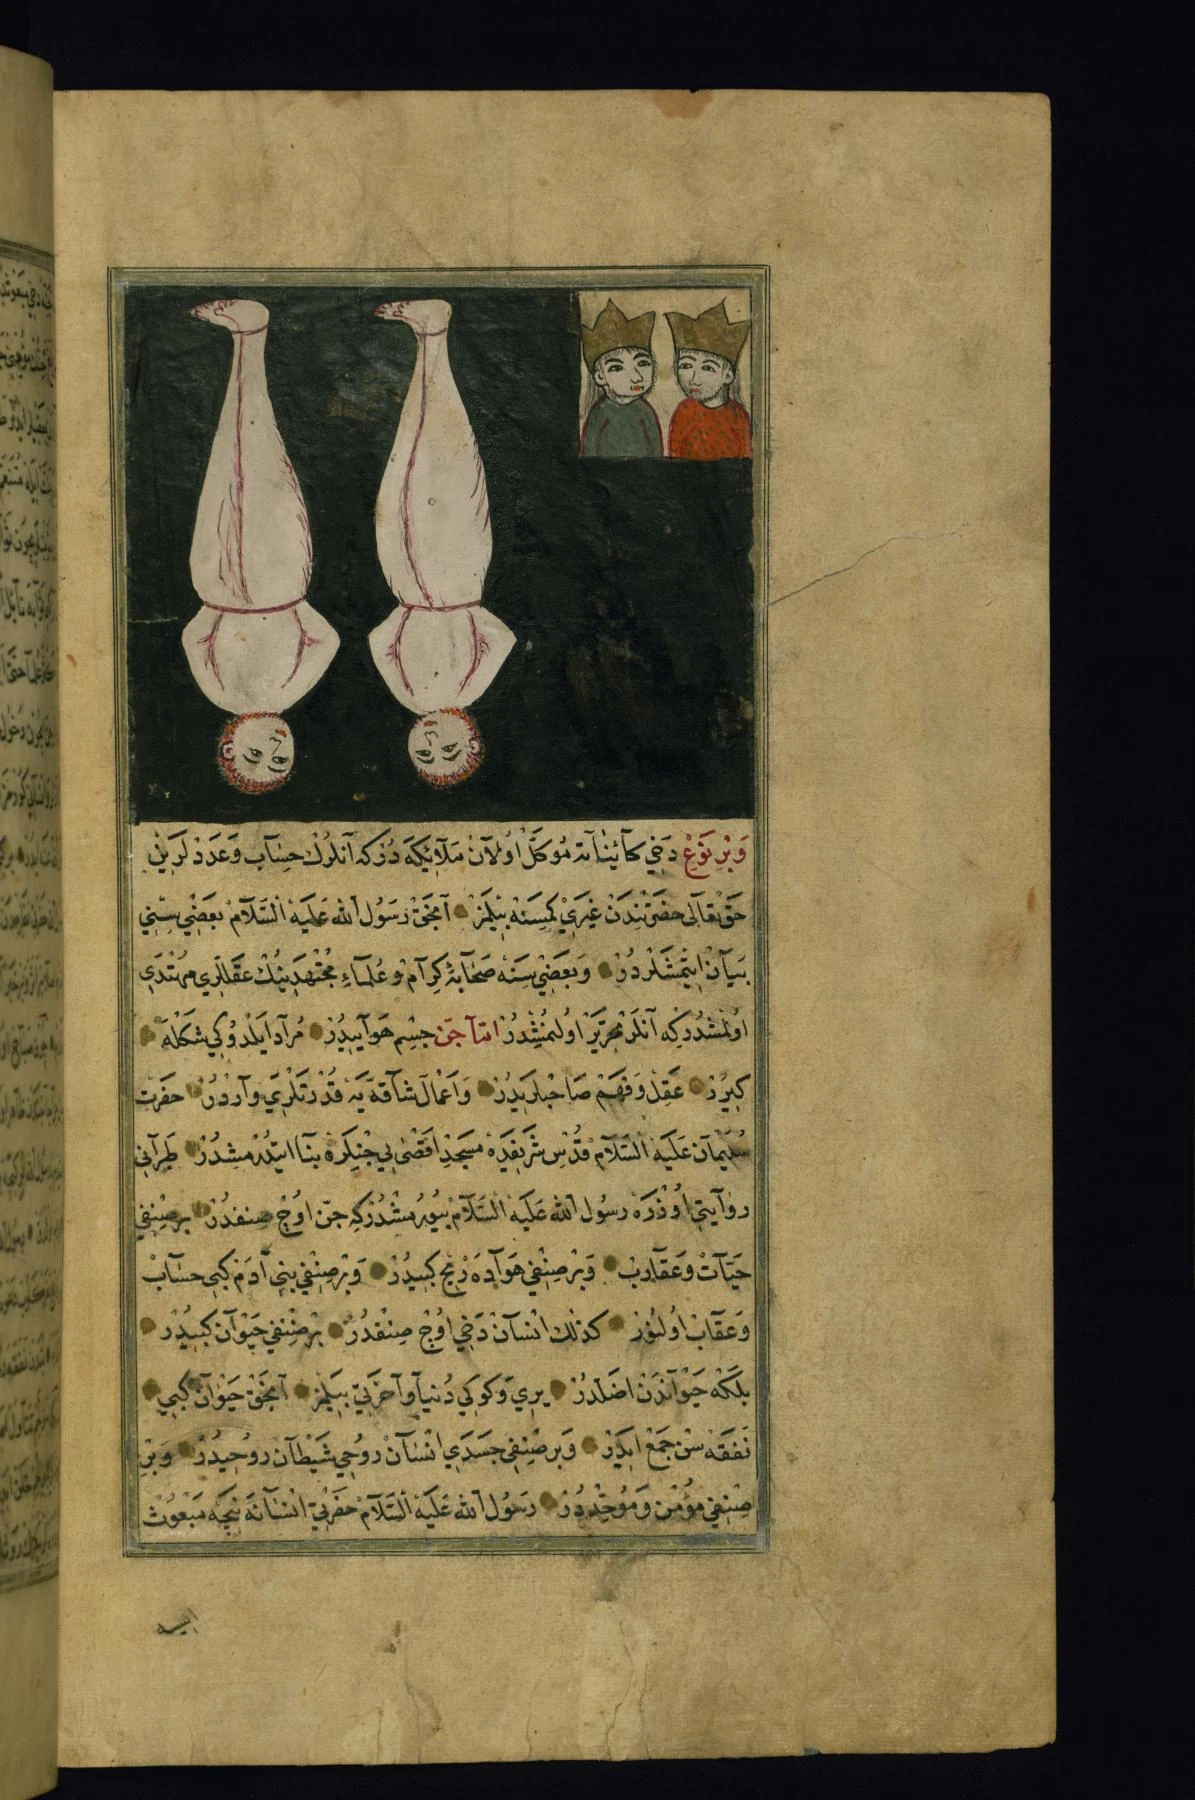 وَبِرْ نَوْعِ دَخِي كَآئِنَاتَه مُوَكَّلْ اُولَانْ مَلَآئِكَه دُرْكِه آنلَرُكْ حِسَابْ وَعَدَدْلَرِيْنِ
حَقْ تَعَالَى حَضْرَتِنْدَنْ غَيْرِيْ كِمْسَنَه بِيْلَمَزْ آنْجَقْ رَسُولُ اللّٰه عَلَيْهِ السَّلَامْ بَعْضِيْسِنِيْ
بَيَانْ اِيْتْمِشْلَرْدُرْ وَبَعْضِيْسِنَه صَحَابَۀ كِرَامْ وُ عُلَمَاءِ مُجْتَهِدِيْنِكْ عَقْلَلرِي مُهْتَدِي
اُولْمِشْدُرْكِه آنلَرْ مُحَرَّرْ اُولُنْمُشْدُرْ امّا جِنّ جِسْمِ هَوَايِيدُرْ مُرَادْ ايْلَدُوكِي شَكْلَه
كِيرُرْ عَقِلْ وَفَهِمْ صَاحِبْلَرِيدُرْ وَاَعْمَالِ شَاقَّه يَه قُدْرَتْلَرِي وَارْدُرْ حَضْرَتِ
سُلَيْمَانْ عَلَيْهِ السَّلَامْ قُدْسِ شَرِيفْدَه مَسْجِدِ اَقْصٰى يِي جِنِّلَرَه بِنَا اِيتْدُرْمِشْدُرْ طَبَرَانِي
رِوَايَتِي اُوزَرَه رَسُولُ اللّٰه عَلَيْهِ السَّلَامْ بُيُورْمِشْدُرْكِه جِنّ اُوچْ صِنِفْدُرْ بِرْ صِنْفِي
حَيَّاتْ وَعَقَارِبْ وَبِرْ صِنْفِي هَوَادَه رِيحْ كِبِيدُرْ وَبِرْ صِنْفِي بَنِي آدَمْ كِبِي حِسَابْ
وَعِقَابْ اُولُنُورْ كَذٰلِكْ انْسَانْ دَخِي اُوچْ صِنِفْدُرْ بِرْ صِنْفِي حَيْوَانْ كِبِيدُرْ
بَلْكِه حَيْوَانْدَنْ اضَلْدُرْ يِرِي وَكُوكِي دُنْيَا وَآخِرَتِي بِيلْمَزْ آنْجَقْ حَيْوَانْ كِبِي
نَفَقَه سِنْ جَمْعْ ايدَرْ وَبِرْ صِنْفِي جَسَدِي انْسَانْ رُوحِي شَيْطَانْ رُوحِيدُرْ وَبِرْ
صِنْفِي مُؤْمِنْ وَمُوَحِّدْدُرْ رَسُولُ اللّٰه عَلَيْهِ السَّلَامْ حَضْرَتِي انْسَانَه نِيجَه مَبْعُوثْ
ايسه